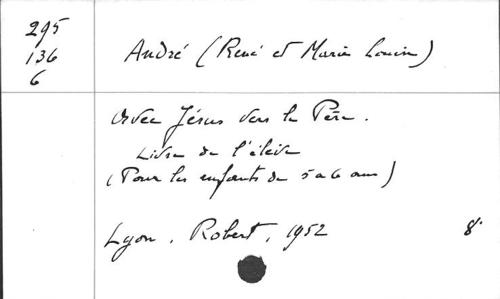 295
136
6
André (René et Marie Louise)
Avec Jésus vers le Père.
Livre de l'élève
(Pour les enfants de 5 à 6 ans)
Lyon, Robert, 1952 8°